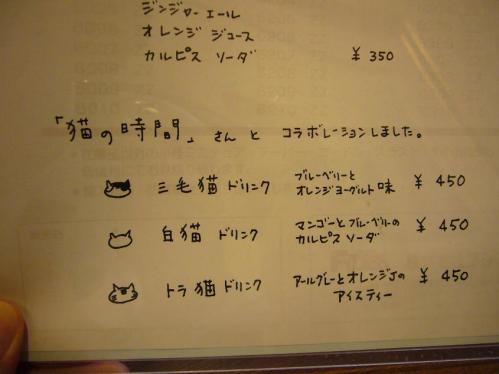 ジンジャーエール
オレンジ ジュース
カルピス ソーダ ¥350
「猫の時間」さんと コラボレーションしました。
三毛猫 ドリンク ブルーベリーと オレンジヨーグルト味 ¥450
白猫 ドリンク マンゴーとブルーベリーの カルピス ソーダ ¥450
トラ猫 ドリンク アールグレーとオレンジJの アイスティー ¥450